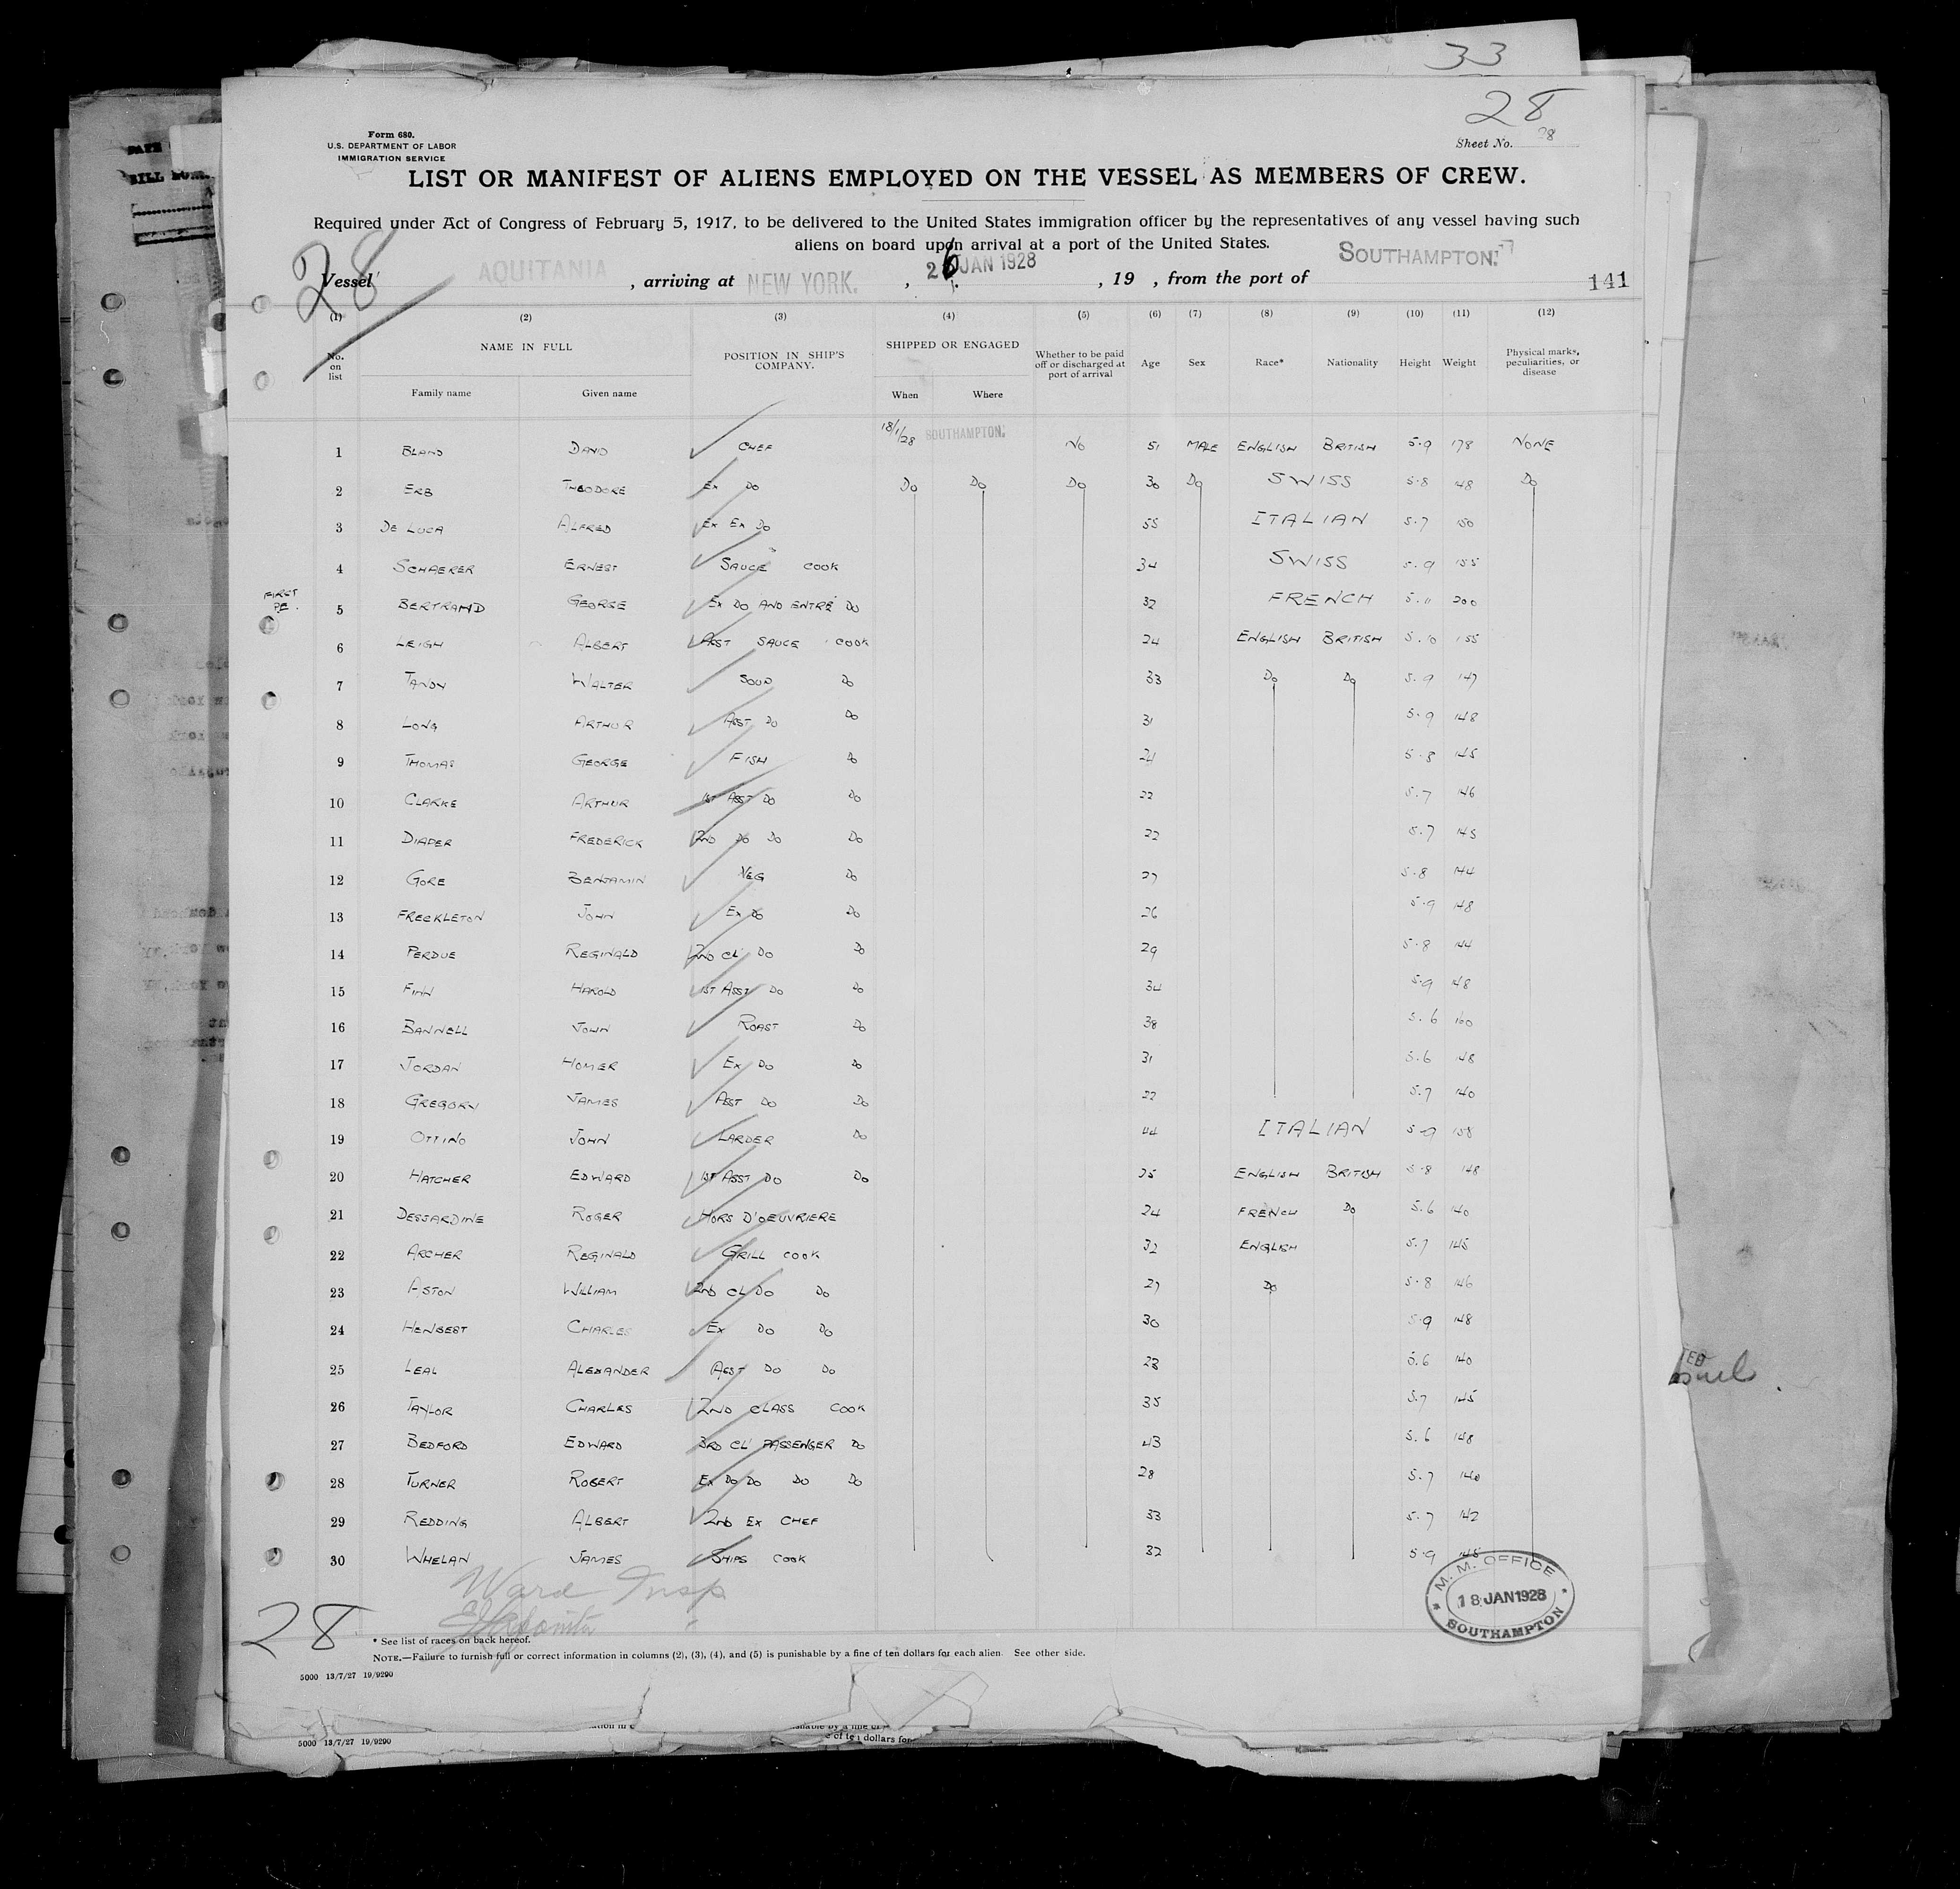 33
28
Form 680.
U.S. DEPARTMENT OF LABOR
IMMIGRATION SERVICE
Sheet No. 28
LIST OR MANIFEST OF ALIENS EMPLOYED ON THE VESSEL AS MEMBERS OF CREW.
Required under Act of Congress of February 5, 1917, to be delivered to the United States immigration officer by the representatives of any vessel having such
aliens on board upon arrival at a port of the United States.
28
Vessel AQUITANIA , arriving at NEW YORK. , 26 JAN 1928 , 19 , from the port of SOUTHAMPTON.
141
(1) (2) (3) (4) (5) (6) (7) (8) (9) (10) (11) (12)
No. on list NAME IN FULL Family name Given name POSITION IN SHIP'S COMPANY. SHIPPED OR ENGAGED When Where Whether to be paid off or discharged at port of arrival Age Sex Race* Nationality Height Weight Physical marks, peculiarities, or disease
1 BLAND DAVID CHEF 18/1/28 SOUTHAMPTON. NO 51 MALE ENGLISH BRITISH 5.9 178 NONE
2 ERB THEODORE EX DO DO DO DO 30 DO SWISS 5.8 148 DO
3 DE LUCA ALFRED EX EX DO 55 ITALIAN 5.7 150
4 SCHAERER ERNEST SAUCE COOK 34 SWISS 5.9 155
FIRST
5 BERTRAND GEORGE EX DO AND ENTRÉ DO 32 FRENCH 5.11 200
6 LEIGH ALBERT ASST SAUCE COOK 24 ENGLISH BRITISH 5.10 155
7 TANDY WALTER SOUP DO 33 DO DO 5.9 147
8 LONG ARTHUR ASST DO DO 31 5.9 148
9 THOMAS GEORGE FISH DO 24 5.8 145
10 CLARKE ARTHUR 1ST ASST DO DO 22 5.7 146
11 DIAPER FREDERICK 2ND DO DO DO 22 5.7 145
12 GORE BENJAMIN VEG DO 27 5.8 144
13 FRECKLETON JOHN EX DO DO 26 5.9 148
14 PERDUE REGINALD 2ND CL DO DO 29 5.8 144
15 FINN HAROLD 1ST ASST DO DO 34 5.9 148
16 BANNELL JOHN ROAST DO 38 5.6 160
17 JORDAN HOMER EX DO DO 31 5.6 148
18 GREGORY JAMES ASST DO DO 22 5.7 140
19 OTTINO JOHN LARDER DO 44 ITALIAN 5.9 158
20 HATCHER EDWARD 1ST ASST DO DO 25 ENGLISH BRITISH 5.8 148
21 DESSARDINE ROGER HORS D'OEUVRIERE 24 FRENCH DO 5.6 140
22 ARCHER REGINALD GRILL COOK 32 ENGLISH 5.7 145
23 ASTON WILLIAM 2ND CL DO DO 27 DO 5.8 146
24 HENBEST CHARLES EX DO DO 30 5.9 148
25 LEAL ALEXANDER ASST DO DO 23 5.6 140
26 TAYLOR CHARLES 2ND CLASS COOK 35 5.7 145
27 BEDFORD EDWARD 3RD CL PASSENGER DO 43 5.6 148
28 TURNER ROBERT EX DO DO DO DO 28 5.7 140
29 REDDING ALBERT 2ND EX CHEF 33 5.7 142
30 WHELAN JAMES SHIPS COOK 32 5.9 145
Ward Insp
28
M. M. OFFICE
18 JAN 1928
SOUTHAMPTON
* See list of races on back hereof.
NOTE.—Failure to furnish full or correct information in columns (2), (3), (4), and (5) is punishable by a fine of ten dollars for each alien. See other side.
5000 13/7/27 19/9290
5000 13/7/27 19/9290